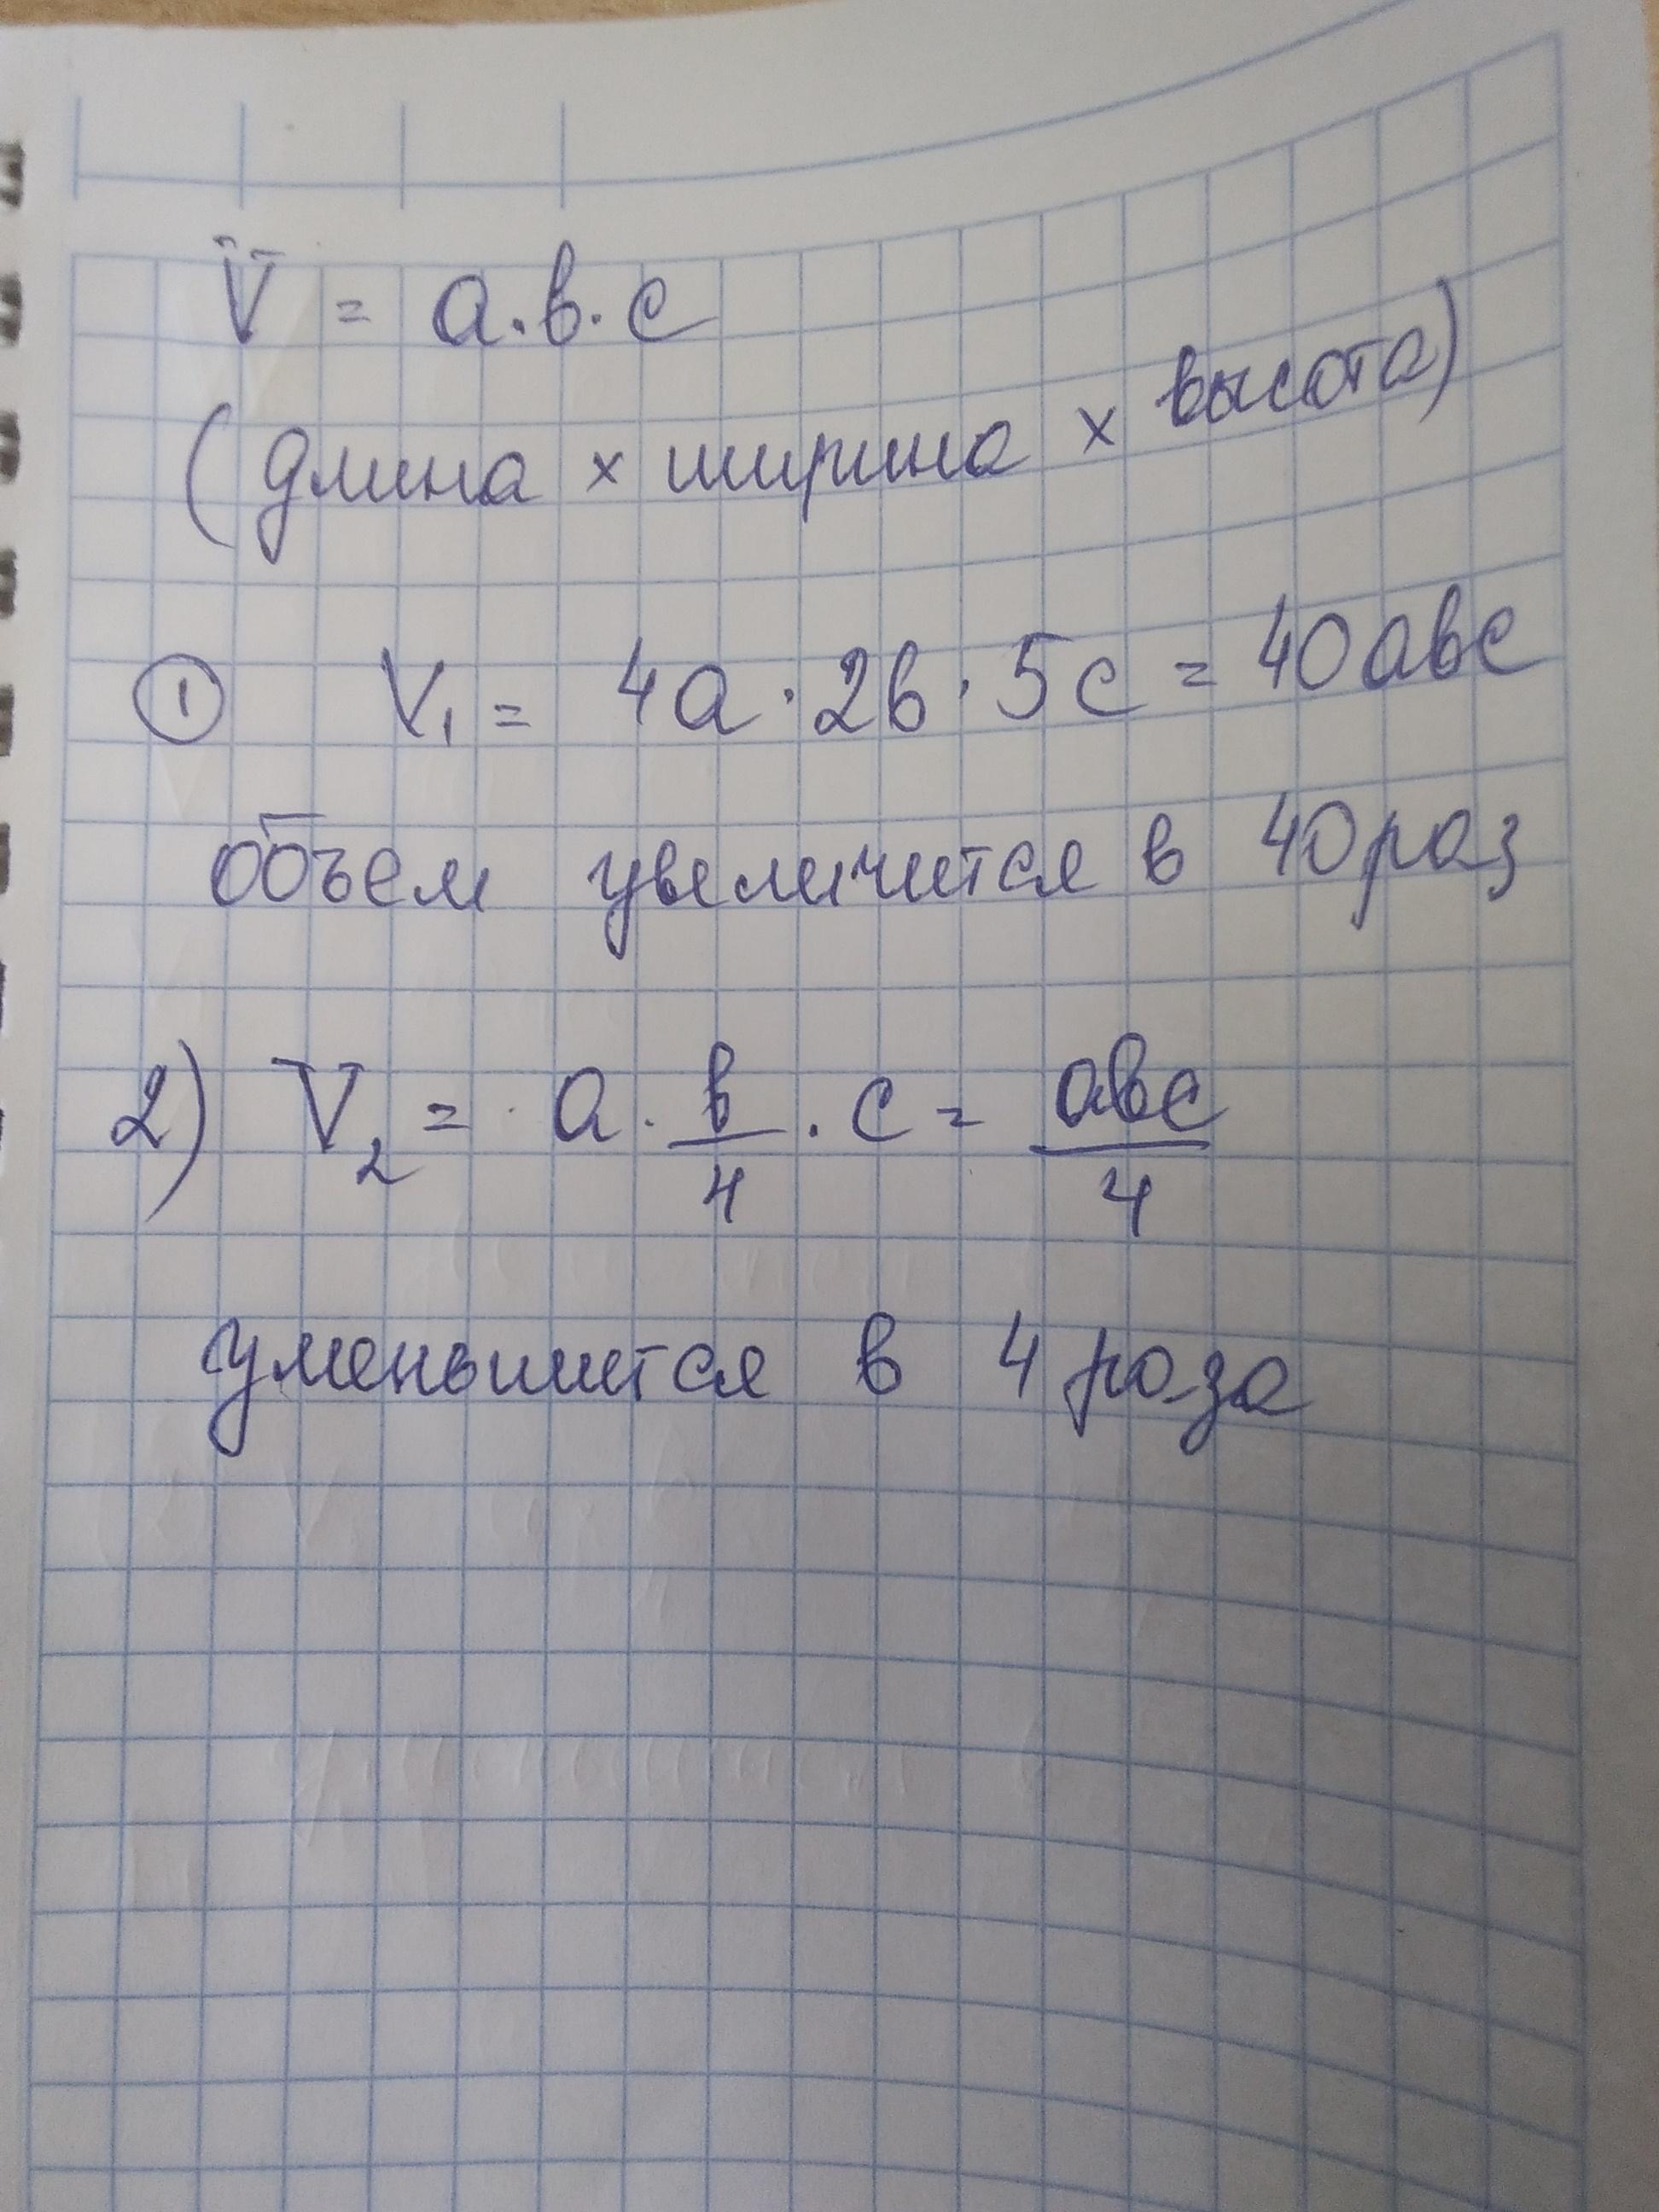 V = а·в·с
(длина × ширина × высота)
① V₁ = 4а·2в·5с = 40авс
объем увеличится в 40 раз
2) V₂ = а · в/4 · с = авс/4
уменьшится в 4 раза